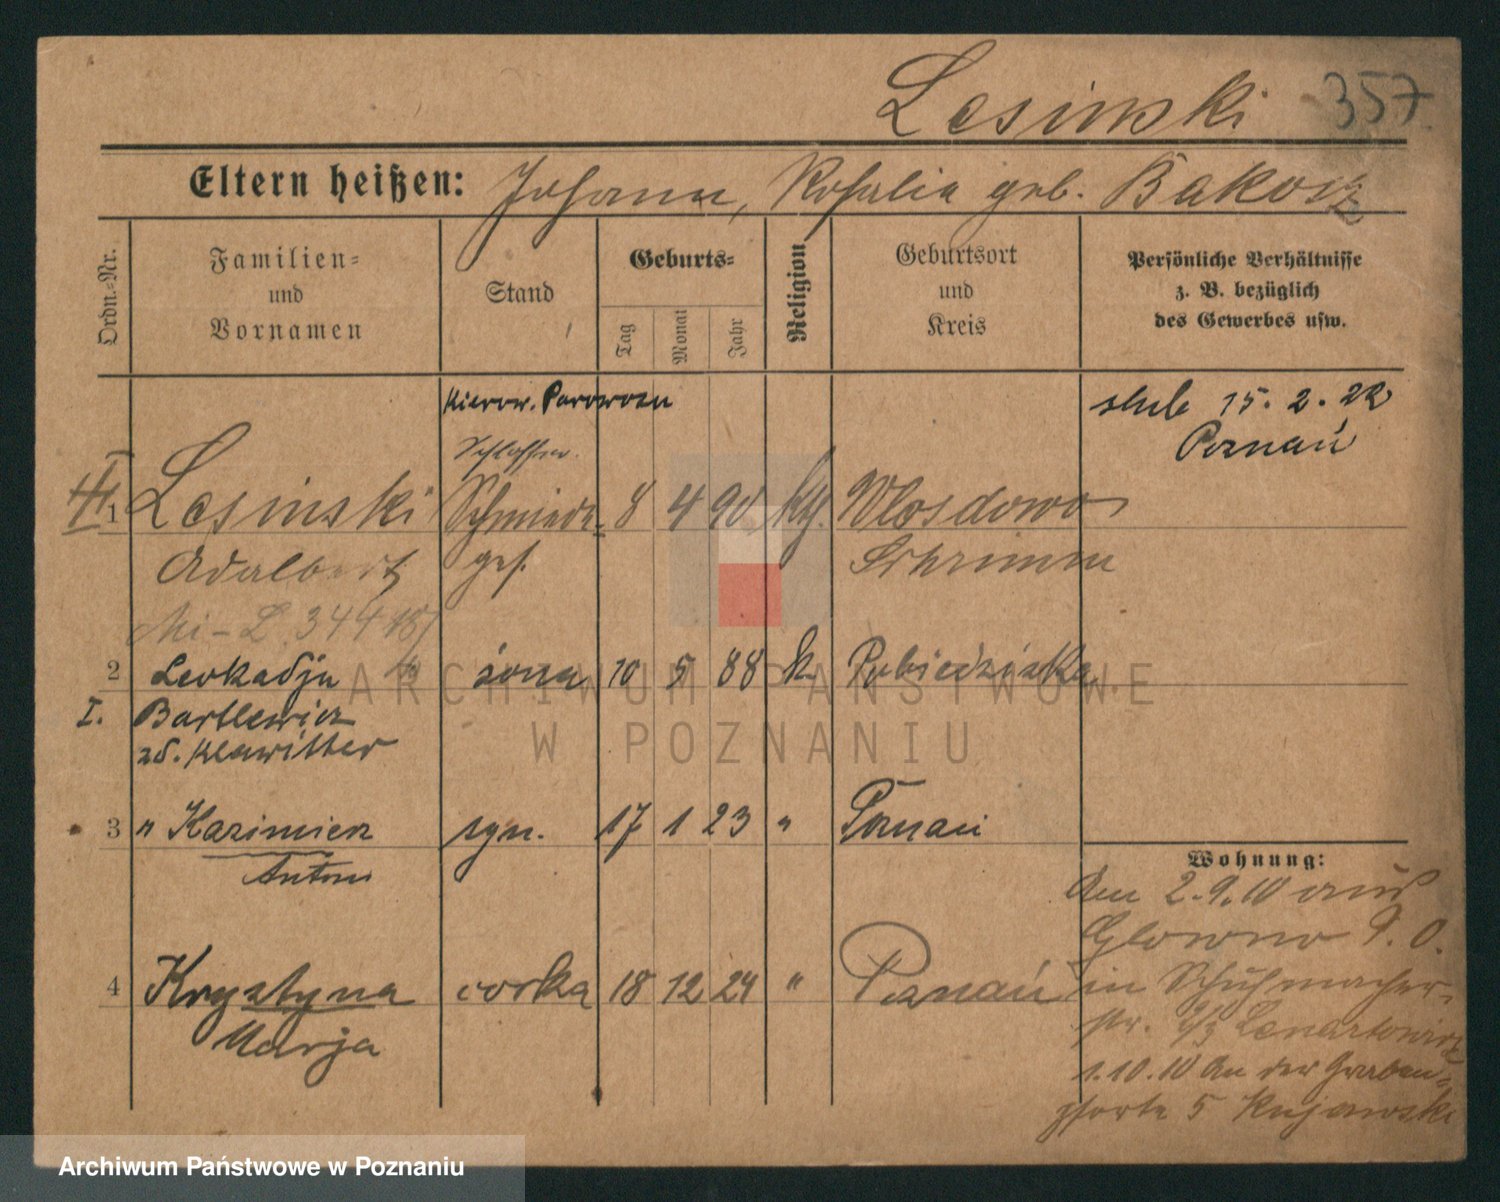 Lesinski 357.
Eltern heißen: Johann, Rosalia geb. Bakosz
Ordn.-Nr.
Familien-
und
Vornamen
Stand
Geburts-
Tag
Monat
Jahr
Religion
Geburtsort
und
Kreis
Persönliche Verhältnisse
z. B. bezüglich
des Gewerbes usw.
Kierow. Parowozu
ślub 15. 2. 22
Poznań
Schlosser.
1 Lesinski Schmiede- 8 4 90 kth. Wlosdowo
Adalbert ges. Schrimm
2 Leokadja żona 10 5 88 k. Pobiedziska
I. Bartlewicz
zd. Klawitter
3 " Kazimierz syn. 17 1 23 " Poznań
Antoni
Wohnung:
Am 2.9.10 aus
Glowno P. O.
4 Krystyna córka 18 12 24 " Poznań
in Schuhmacher-
Marja
str. 2/3 Lenartowicz
1.10.10 An der Graben-
pforte 5 Kujawski
ARCHIWUM PAŃSTWOWE
W POZNANIU
Archiwum Państwowe w Poznaniu